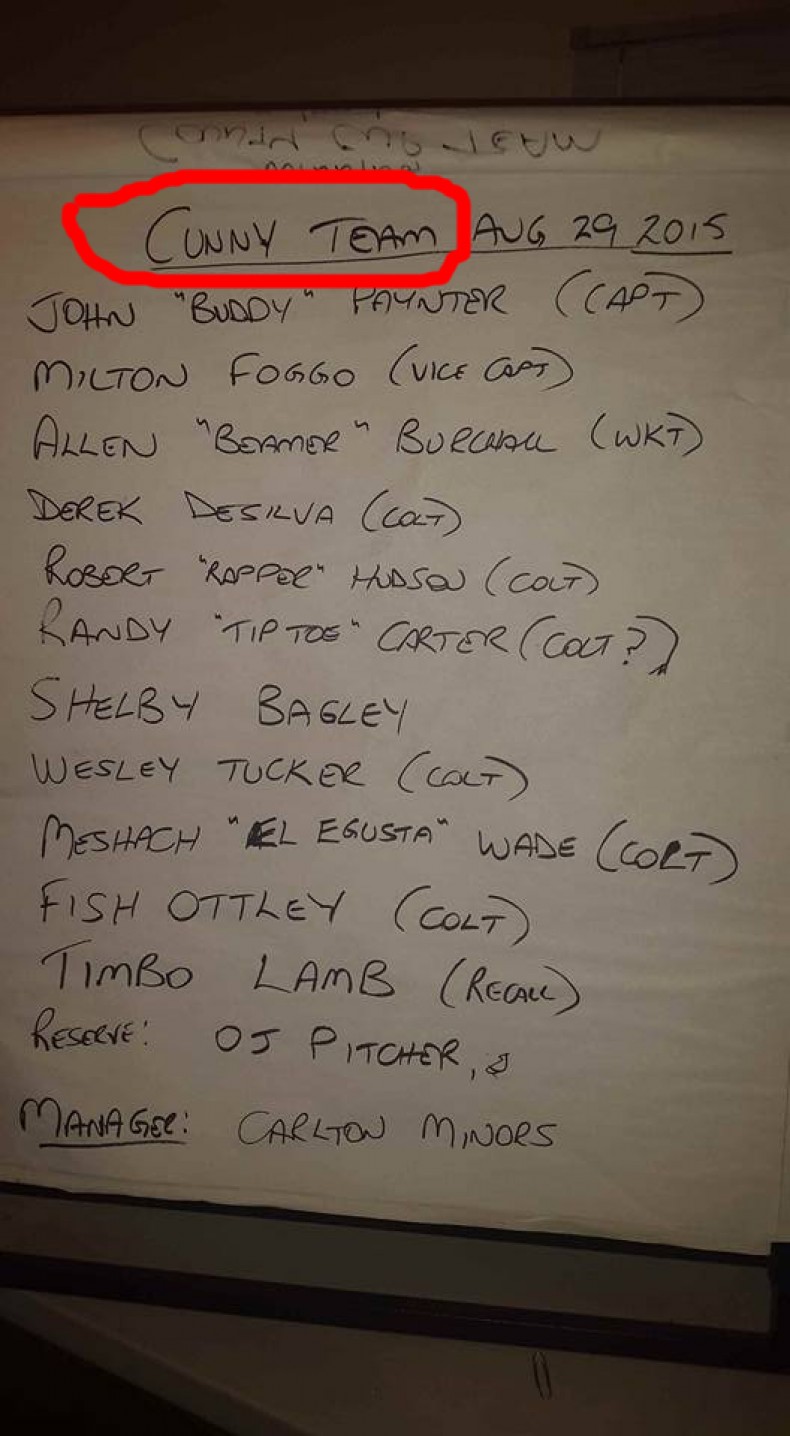 CUNNY TEAM AUG 29 2015
JOHN "BUDDY" PAYNTER (CAPT)
MILTON FOGGO (VICE CAPT)
ALLEN "BEAMER" BURCHALL (WKT)
DEREK DESILVA (COLT)
ROBERT "RAPPER" HUDSON (COLT)
RANDY "TIP TOE" CARTER (COLT?)
SHELBY BAGLEY
WESLEY TUCKER (COLT)
MESHACH "EL EGUSTA" WADE (COLT)
FISH OTTLEY (COLT)
TIMBO LAMB (RECALL)
RESERVE: OJ PITCHER,
MANAGER: CARLTON MINORS